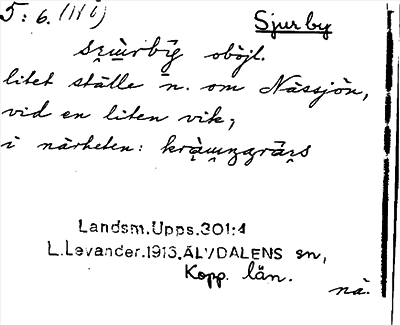 5:6. (116)
Sjurby
oböjl.
litet ställe n. om Nässjön,
vid en liten vik;
i närheten:
Landsm.Upps.301:4
L.Levander.1913.ÄLVDALENS sn,
Kopp. län.
nä.